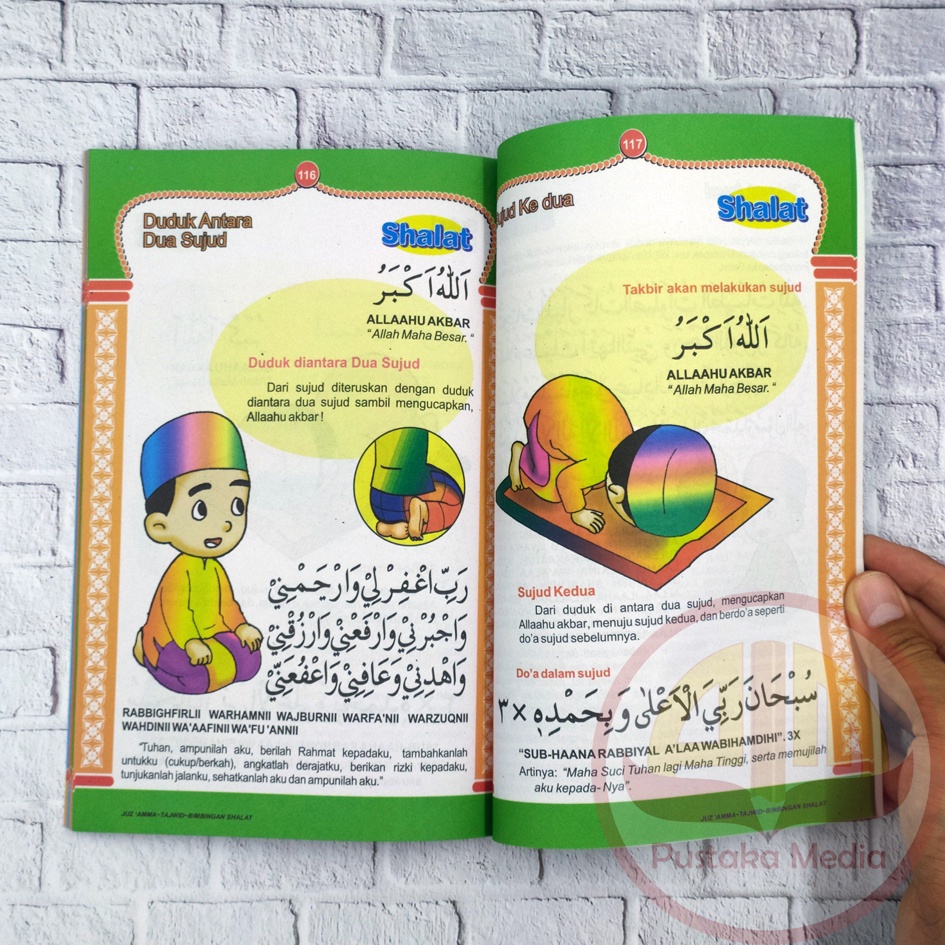 116
Duduk Antara
Dua Sujud
Shalat
اَللهُ اَكْبَرُ
ALLAAHU AKBAR
“Allah Maha Besar.“
Duduk diantara Dua Sujud
Dari sujud diteruskan dengan duduk
diantara dua sujud sambil mengucapkan,
Allaahu akbar !
رَبِّ اغْفِرْ لِيْ وَارْحَمْنِيْ
وَاجْبُرْنِيْ وَارْفَعْنِيْ وَارْزُقْنِيْ
وَاهْدِنِيْ وَعَافِنِيْ وَاعْفُعَنِّيْ
RABBIGHFIRLII WARHAMNII WAJBURNII WARFA'NII WARZUQNII
WAHDINII WA'AAFINII WA'FU 'ANNII
“Tuhan, ampunilah aku, berilah Rahmat kepadaku, tambahkanlah
untukku (cukup/berkah), angkatlah derajatku, berikan rizki kepadaku,
tunjukanlah jalanku, sehatkanlah aku dan ampunilah aku.”
JUZ 'AMMA-TAJWID-BIMBINGAN SHALAT
117
Ke dua
Shalat
Takbir akan melakukan sujud
اَللهُ اَكْبَرُ
ALLAAHU AKBAR
“Allah Maha Besar. “
Sujud Kedua
Dari duduk di antara dua sujud, mengucapkan
Allaahu akbar, menuju sujud kedua, dan berdo'a seperti
do'a sujud sebelumnya.
Do'a dalam sujud
سُبْحَانَ رَبِّيَ الْاَعْلٰى وَبِحَمْدِهِ ×٣
“SUB-HAANA RABBIYAL A'LAA WABIHAMDIHI”. 3X
Artinya: “Maha Suci Tuhan lagi Maha Tinggi, serta memujilah
aku kepada- Nya”.
JUZ 'AMMA-TAJWID-BIMBINGAN SHALAT
Pustaka Media